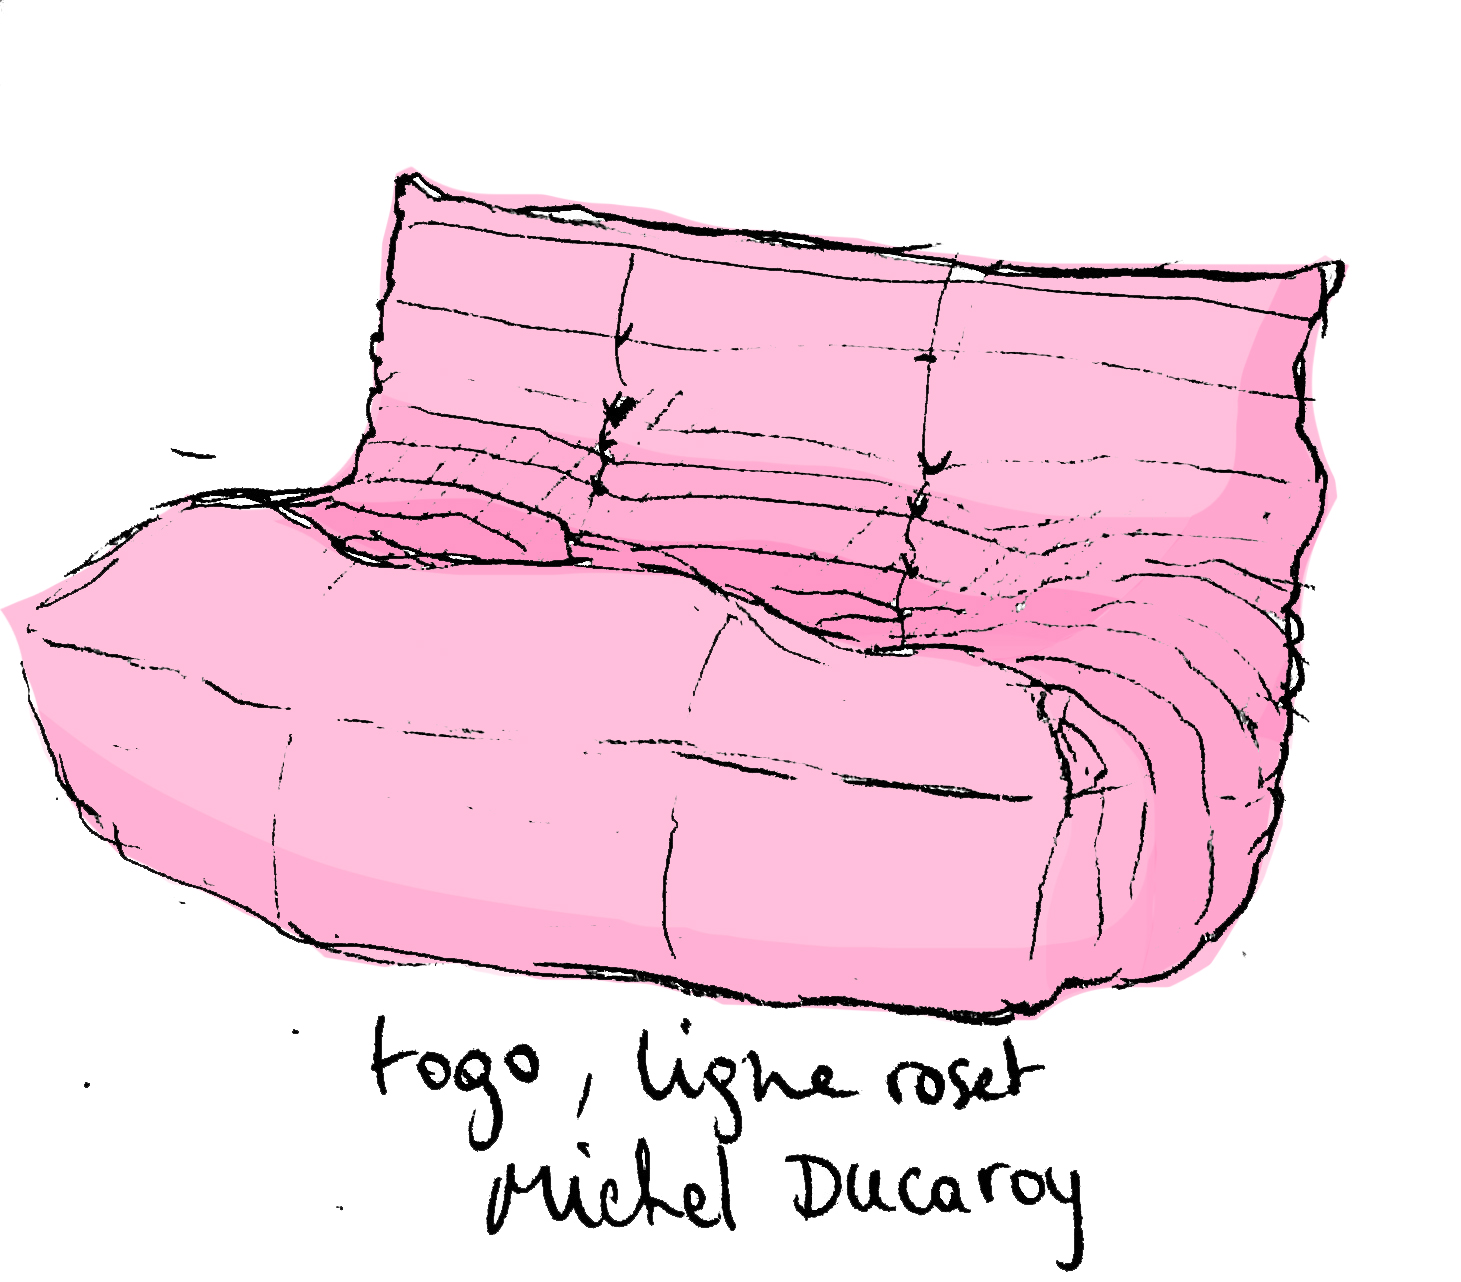 togo, ligne roset
Michel Ducaroy